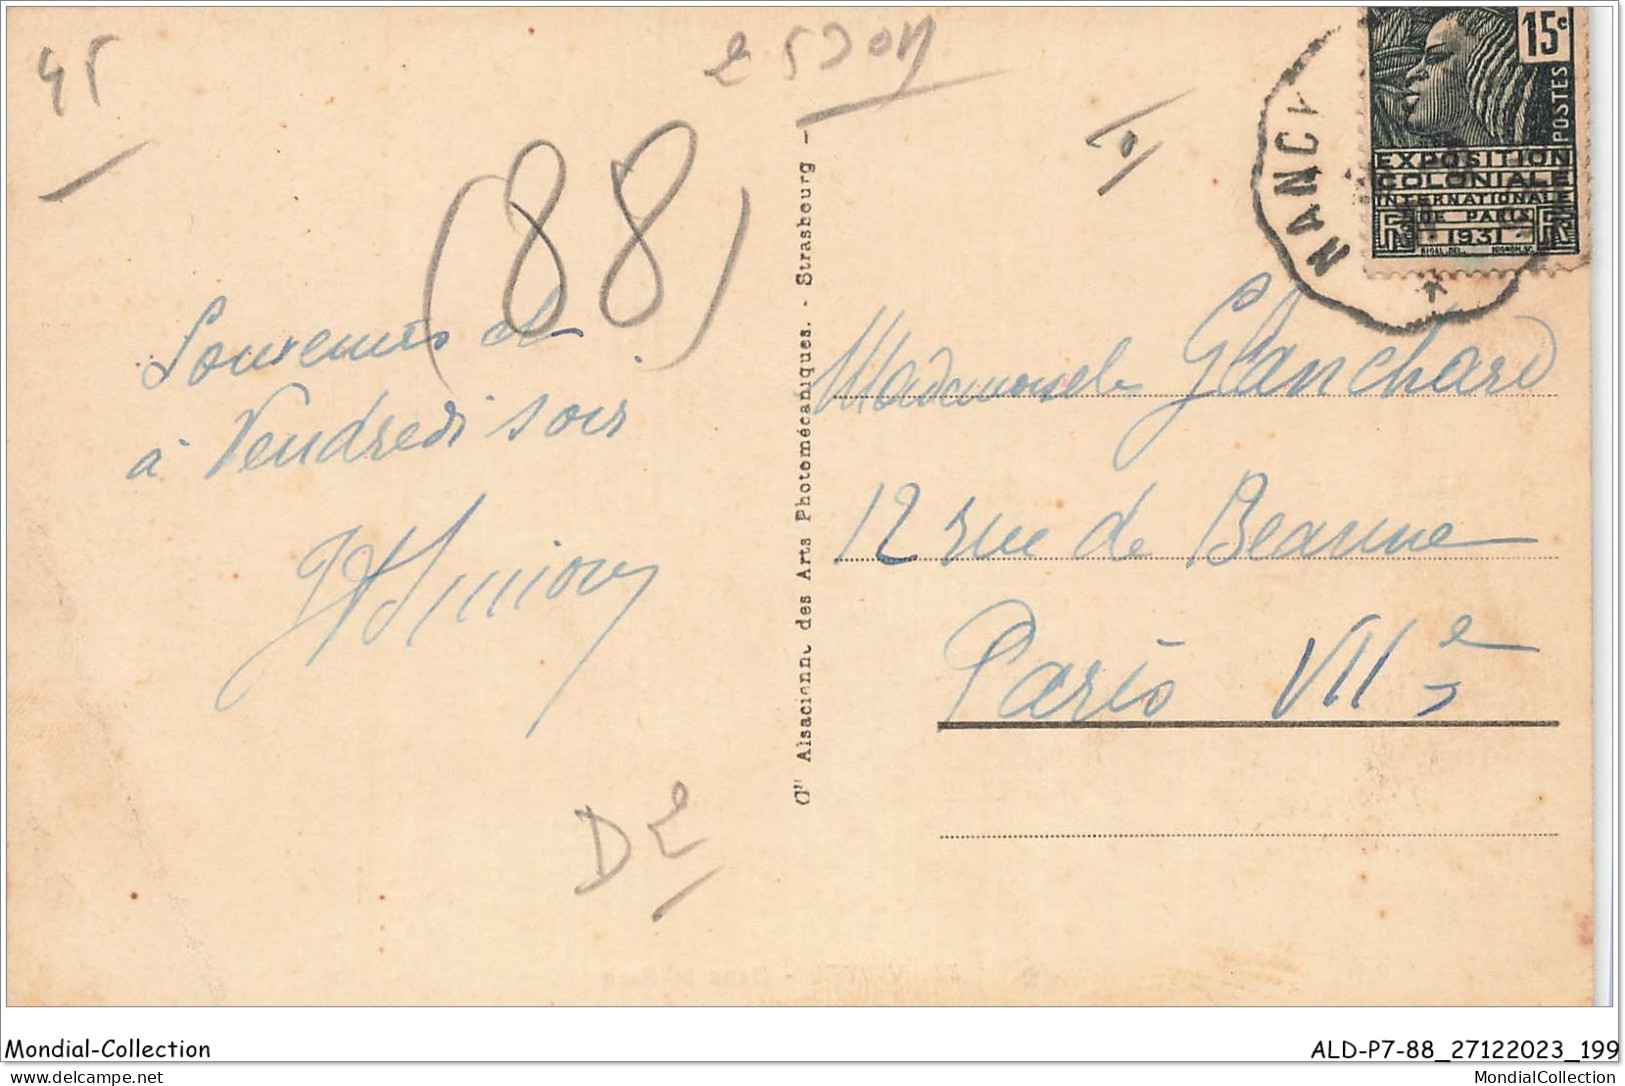 45
(88)
Souvenirs et
à Vendredi soir
D2
Cie Alsacienne des Arts Photomécaniques. - Strasbourg -
NANCY
15c
POSTES
EXPOSITION
COLONIALE
INTERNATIONALE
DE PARIS
1931
Mademoiselle Glanchard
12 rue de Beaune
Paris VIIe
Mondial-Collection
ALD-P7-88_27122023_199
delcampe.net
MondialCollection